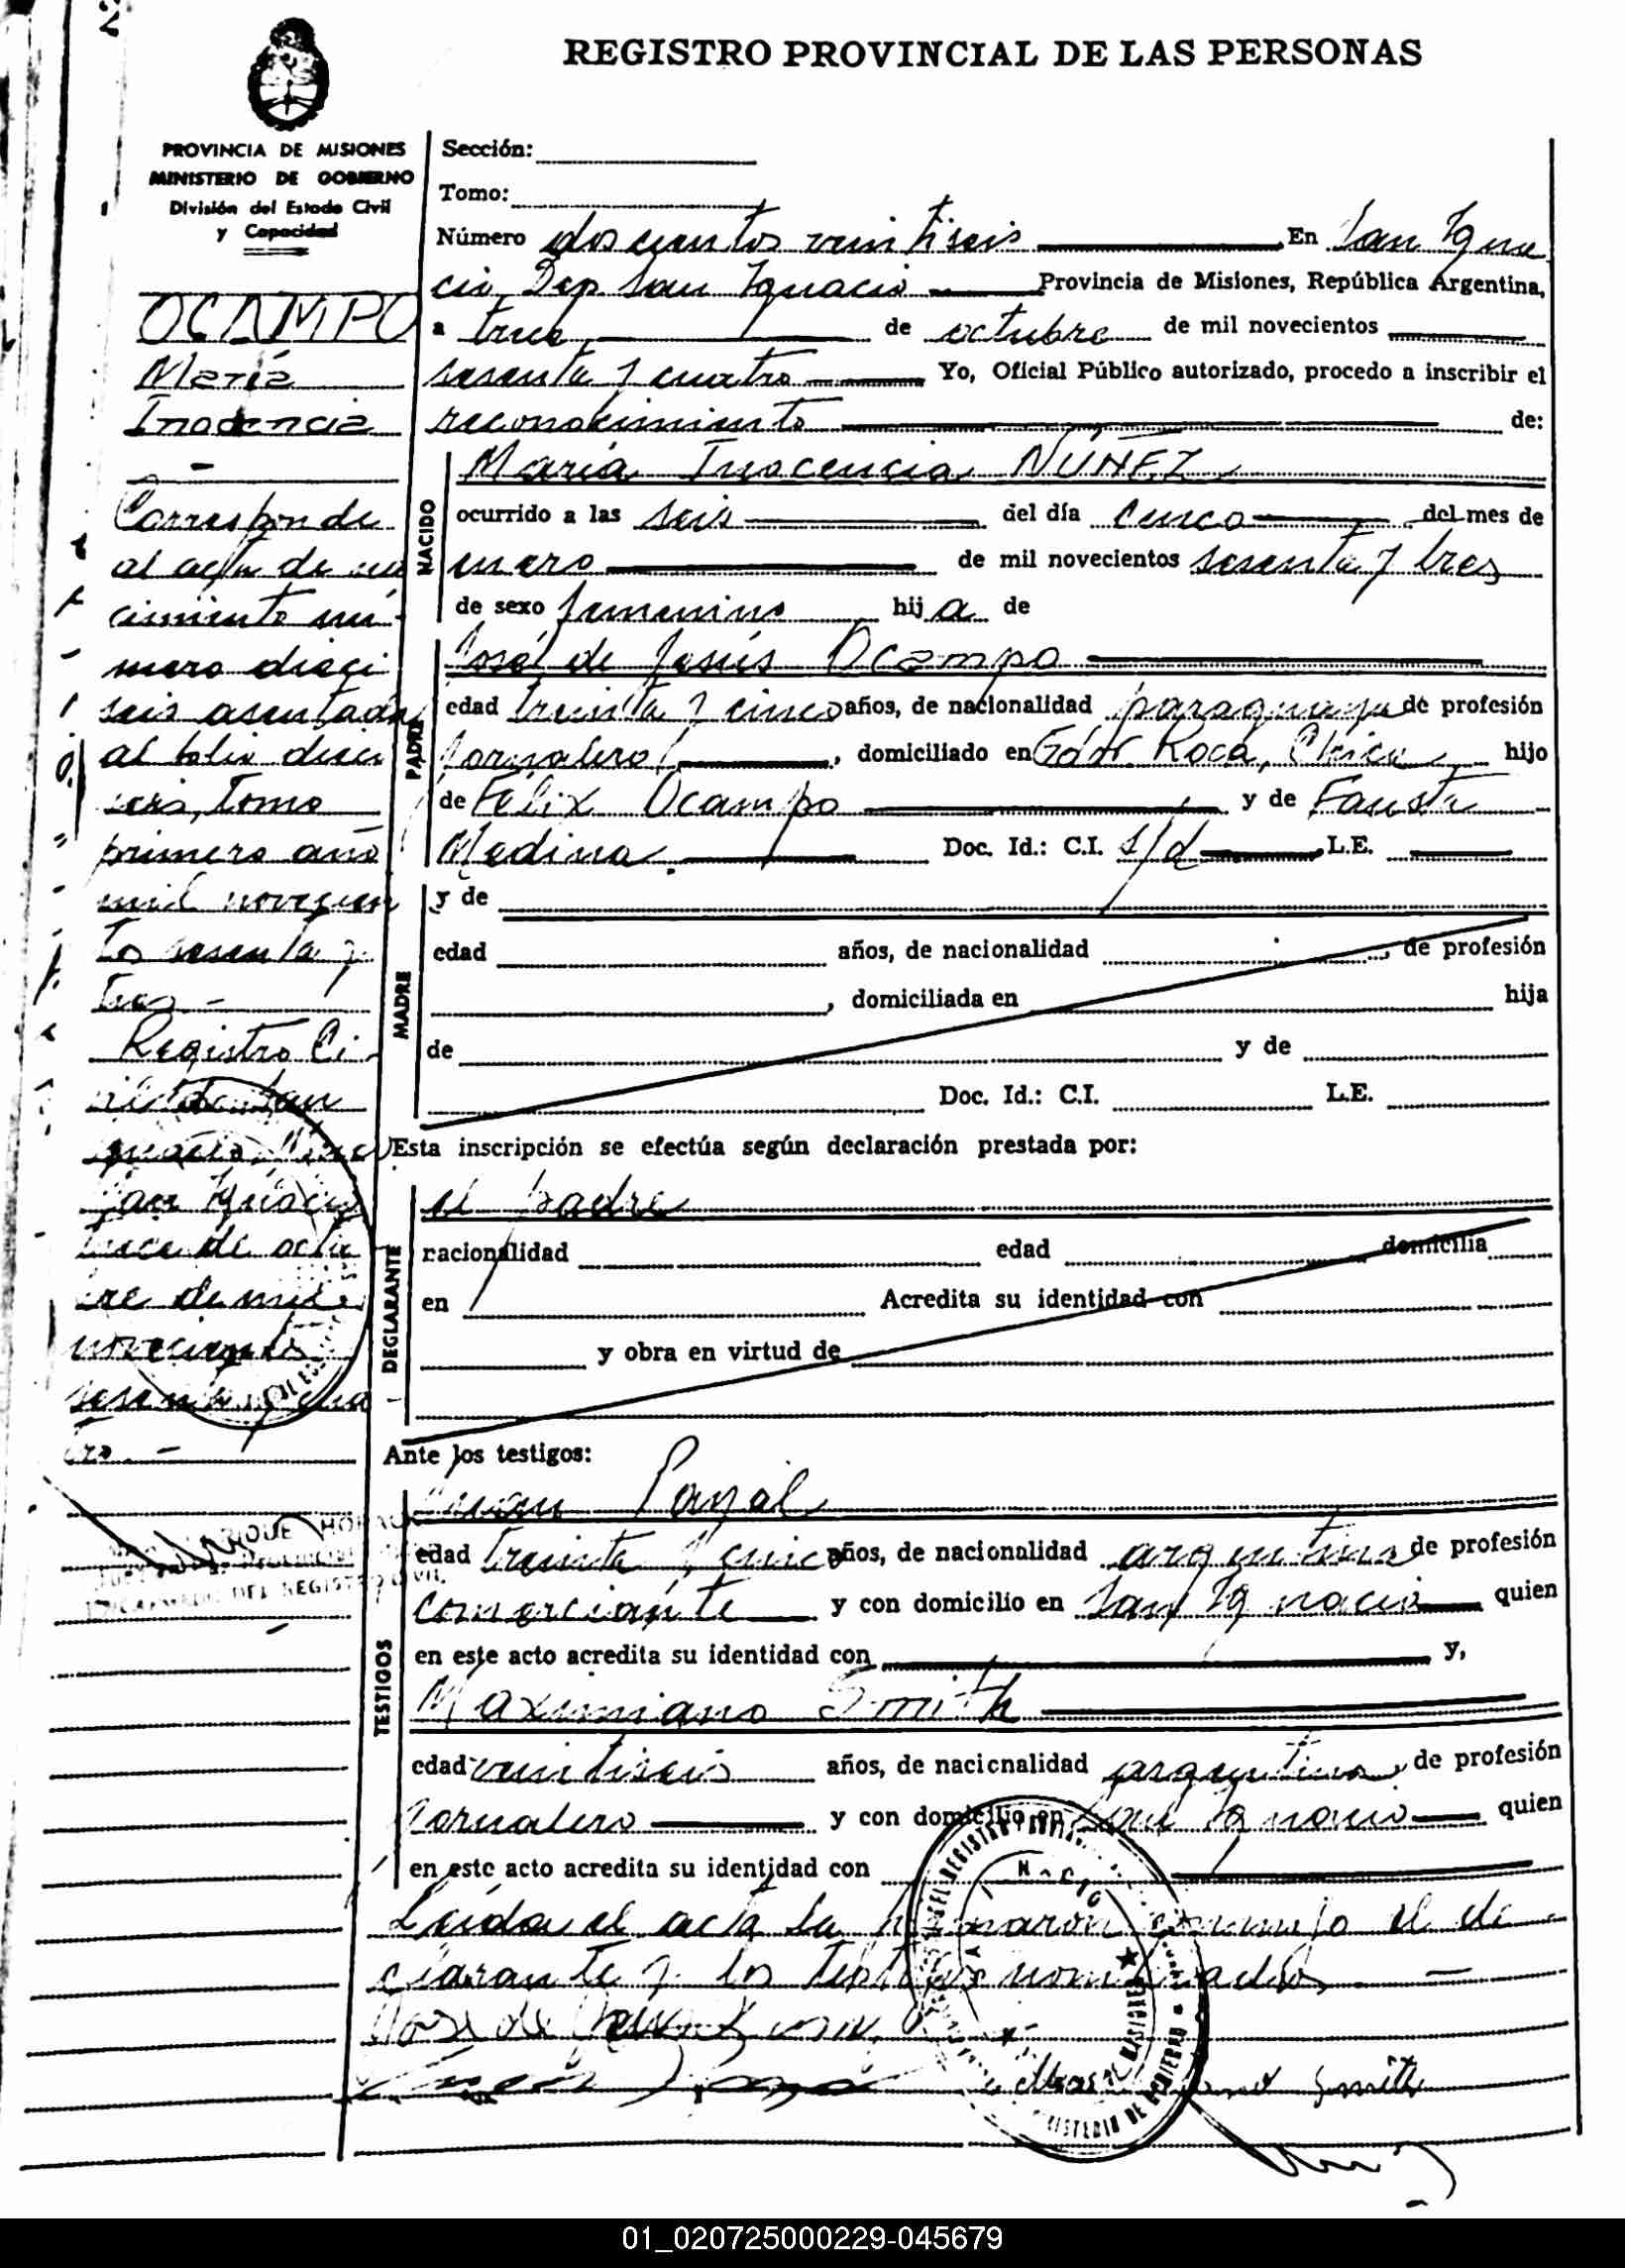 REGISTRO PROVINCIAL DE LAS PERSONAS
PROVINCIA DE MISIONES
MINISTERIO DE GOBIERNO
División del Estado Civil
y Capacidad
OCAMPO
María
Inocencia
Corresponde
al acta de na
cimiento nú-
mero dieci
seis asentada
al folio dieci
seis, Tomo
primero año
mil novecien
tos sesenta y
tres -
Registro Ci-
vil de San
Ignacio
San Ignacio
trece de octu
bre de mil
novecientos
sesenta y cua
tro. -
Sección:
Tomo:
Número doscientos veintiseis En San Igna
cio, Dep San Ignacio Provincia de Misiones, República Argentina,
a trece de octubre de mil novecientos
sesenta y cuatro Yo, Oficial Público autorizado, procedo a inscribir el
reconocimiento de:
NACIDO
María Inocencia NUÑEZ
ocurrido a las seis del día cinco del mes de
enero de mil novecientos sesenta y tres
de sexo femenino hija de
PADRE
José de Jesús Ocampo
edad treinta y cinco años, de nacionalidad paraguaya de profesión
Jornalero, domiciliado en Gdor. Roca, Chico hijo
de Felix Ocampo y de Fausta
Medina. Doc. Id.: C.I. s/d L.E.
MADRE
y de
edad años, de nacionalidad , de profesión
, domiciliada en hija
de y de
Doc. Id.: C.I. L.E.
Esta inscripción se efectúa según declaración prestada por:
DECLARANTE
el padre
nacionalidad edad domicilia
en Acredita su identidad con
y obra en virtud de
Ante los testigos:
TESTIGOS
Juan
edad treinta y cinco años, de nacionalidad argentina de profesión
comerciante y con domicilio en San Ignacio quien
en este acto acredita su identidad con y,
Maximiano Smith
edad veintiseis años, de nacionalidad argentina, de profesión
Jornalero y con domicilio en San Ignacio quien
en este acto acredita su identidad con
Leida el acta la firmaron conmigo el de
clarante y los testigos nombrados. -
José de
Smith
01_020725000229-045679